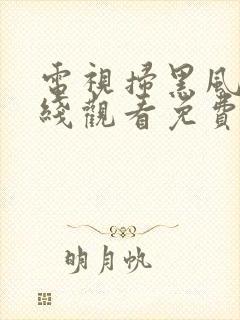 電視掃黑風
綫觀看免費
明月帆